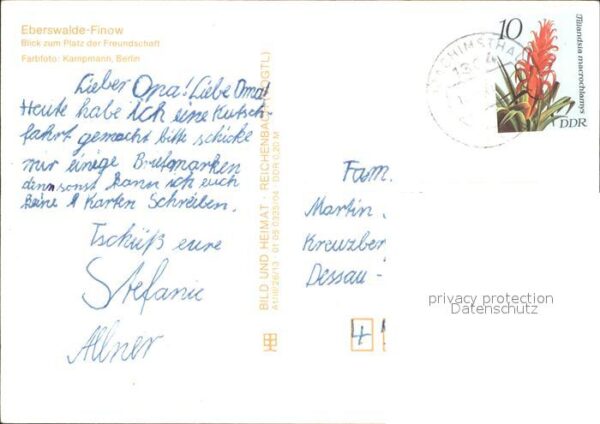 Eberswalde-Finow
Blick zum Platz der Freundschaft
Farbfoto: Kampmann, Berlin
Lieber Opa! Liebe Oma!
Heute habe ich eine Kutsch-
fahrt gemacht bitte schicke
mir einige Brifmarken
denn sonst kann ich euch
keine Karten Schreiben.
Tschüß eure
Stefanie
Allner
BILD UND HEIMAT · REICHENBACH (VOGTL)
A1/III/26/13 · 01 05 0325/04 · DDR 0,20 M
10
Tillandsia macrochlamys
DDR
Fam.
Martin
Kreuzber
Dessau-
privacy protection
Datenschutz
4